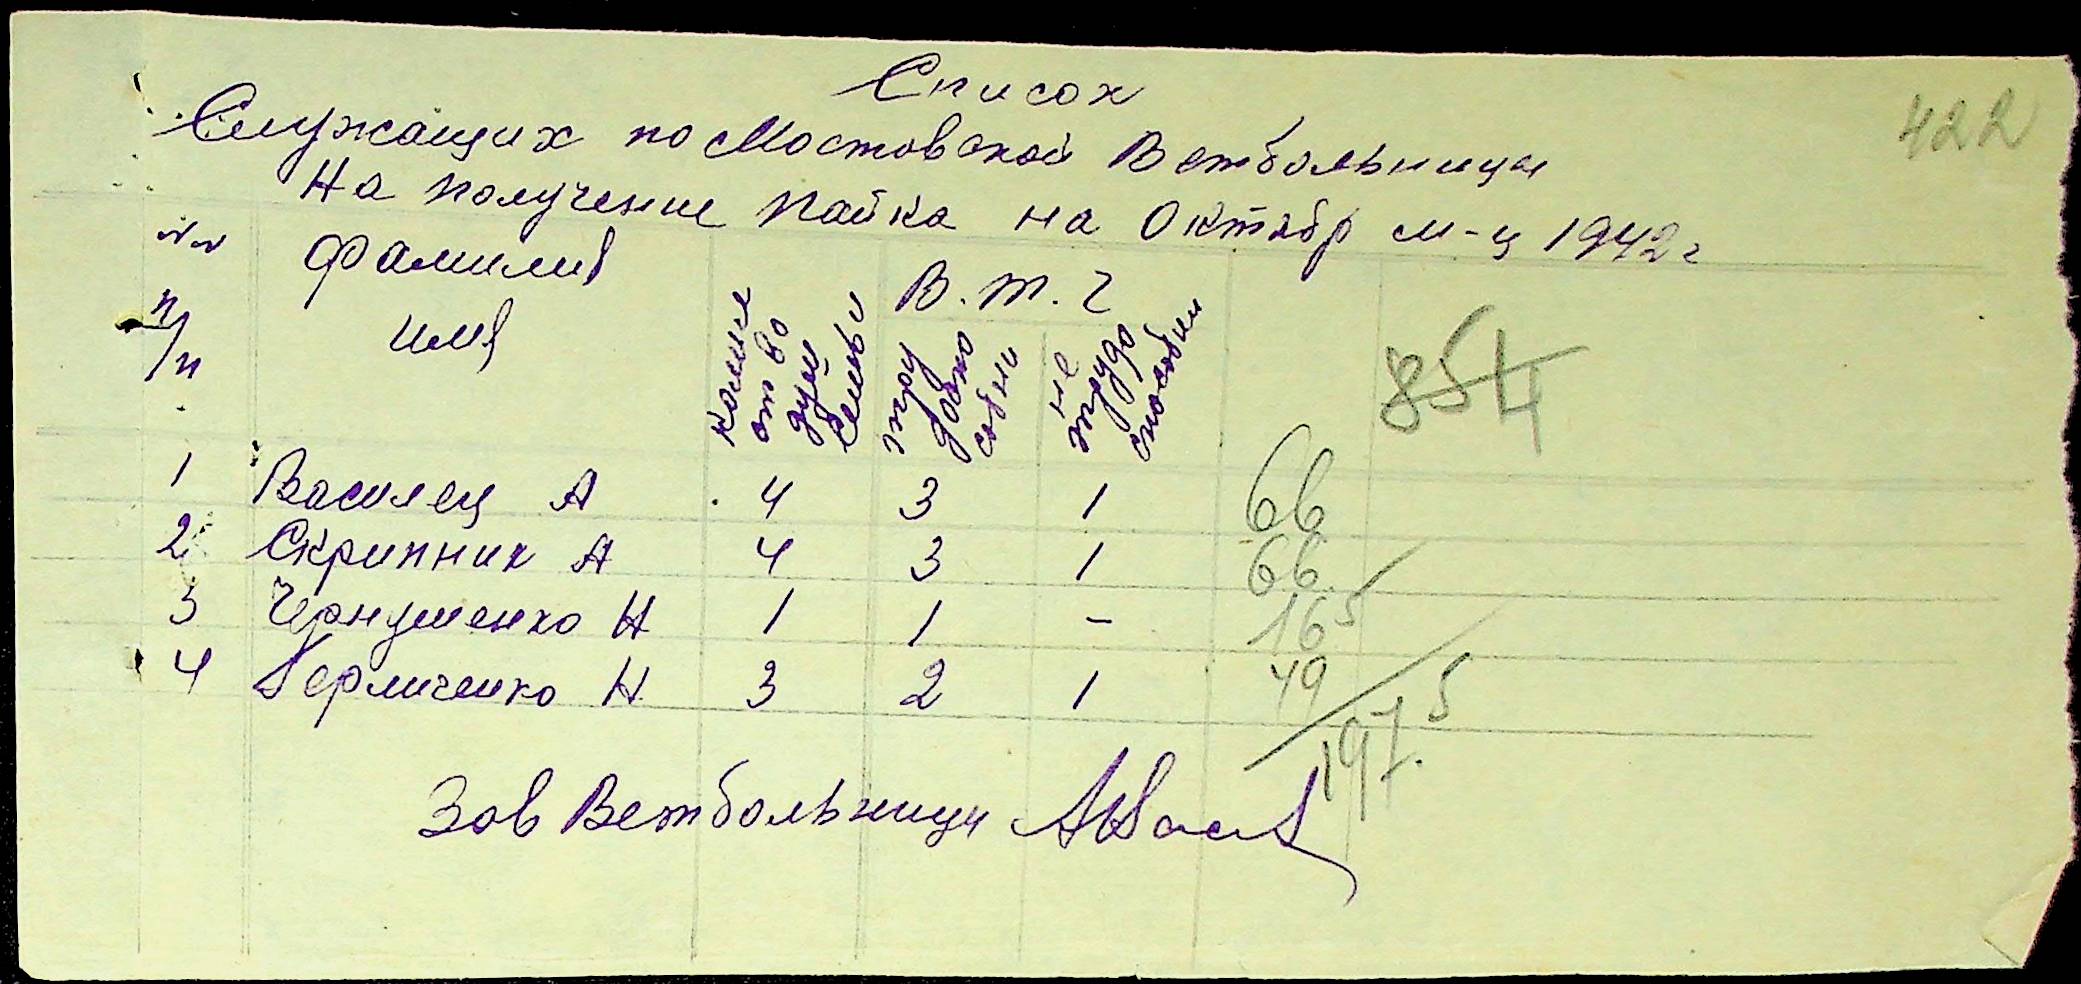 Список
422
Служащих по Мостовской Ветбольници
На получение пайка на Октябр м-ц 1942 г
№№ п/п
фамилия имя
количе ство душ семьи
В. т. ч
трудоспо собни
не трудо способни
854
1 Василец А 4 3 1 66
2 Скрипник А 4 3 1 66
3 Чернушенко Н 1 1 - 16 5
4 Н 3 2 1 49
197.5
Зав Ветбольници